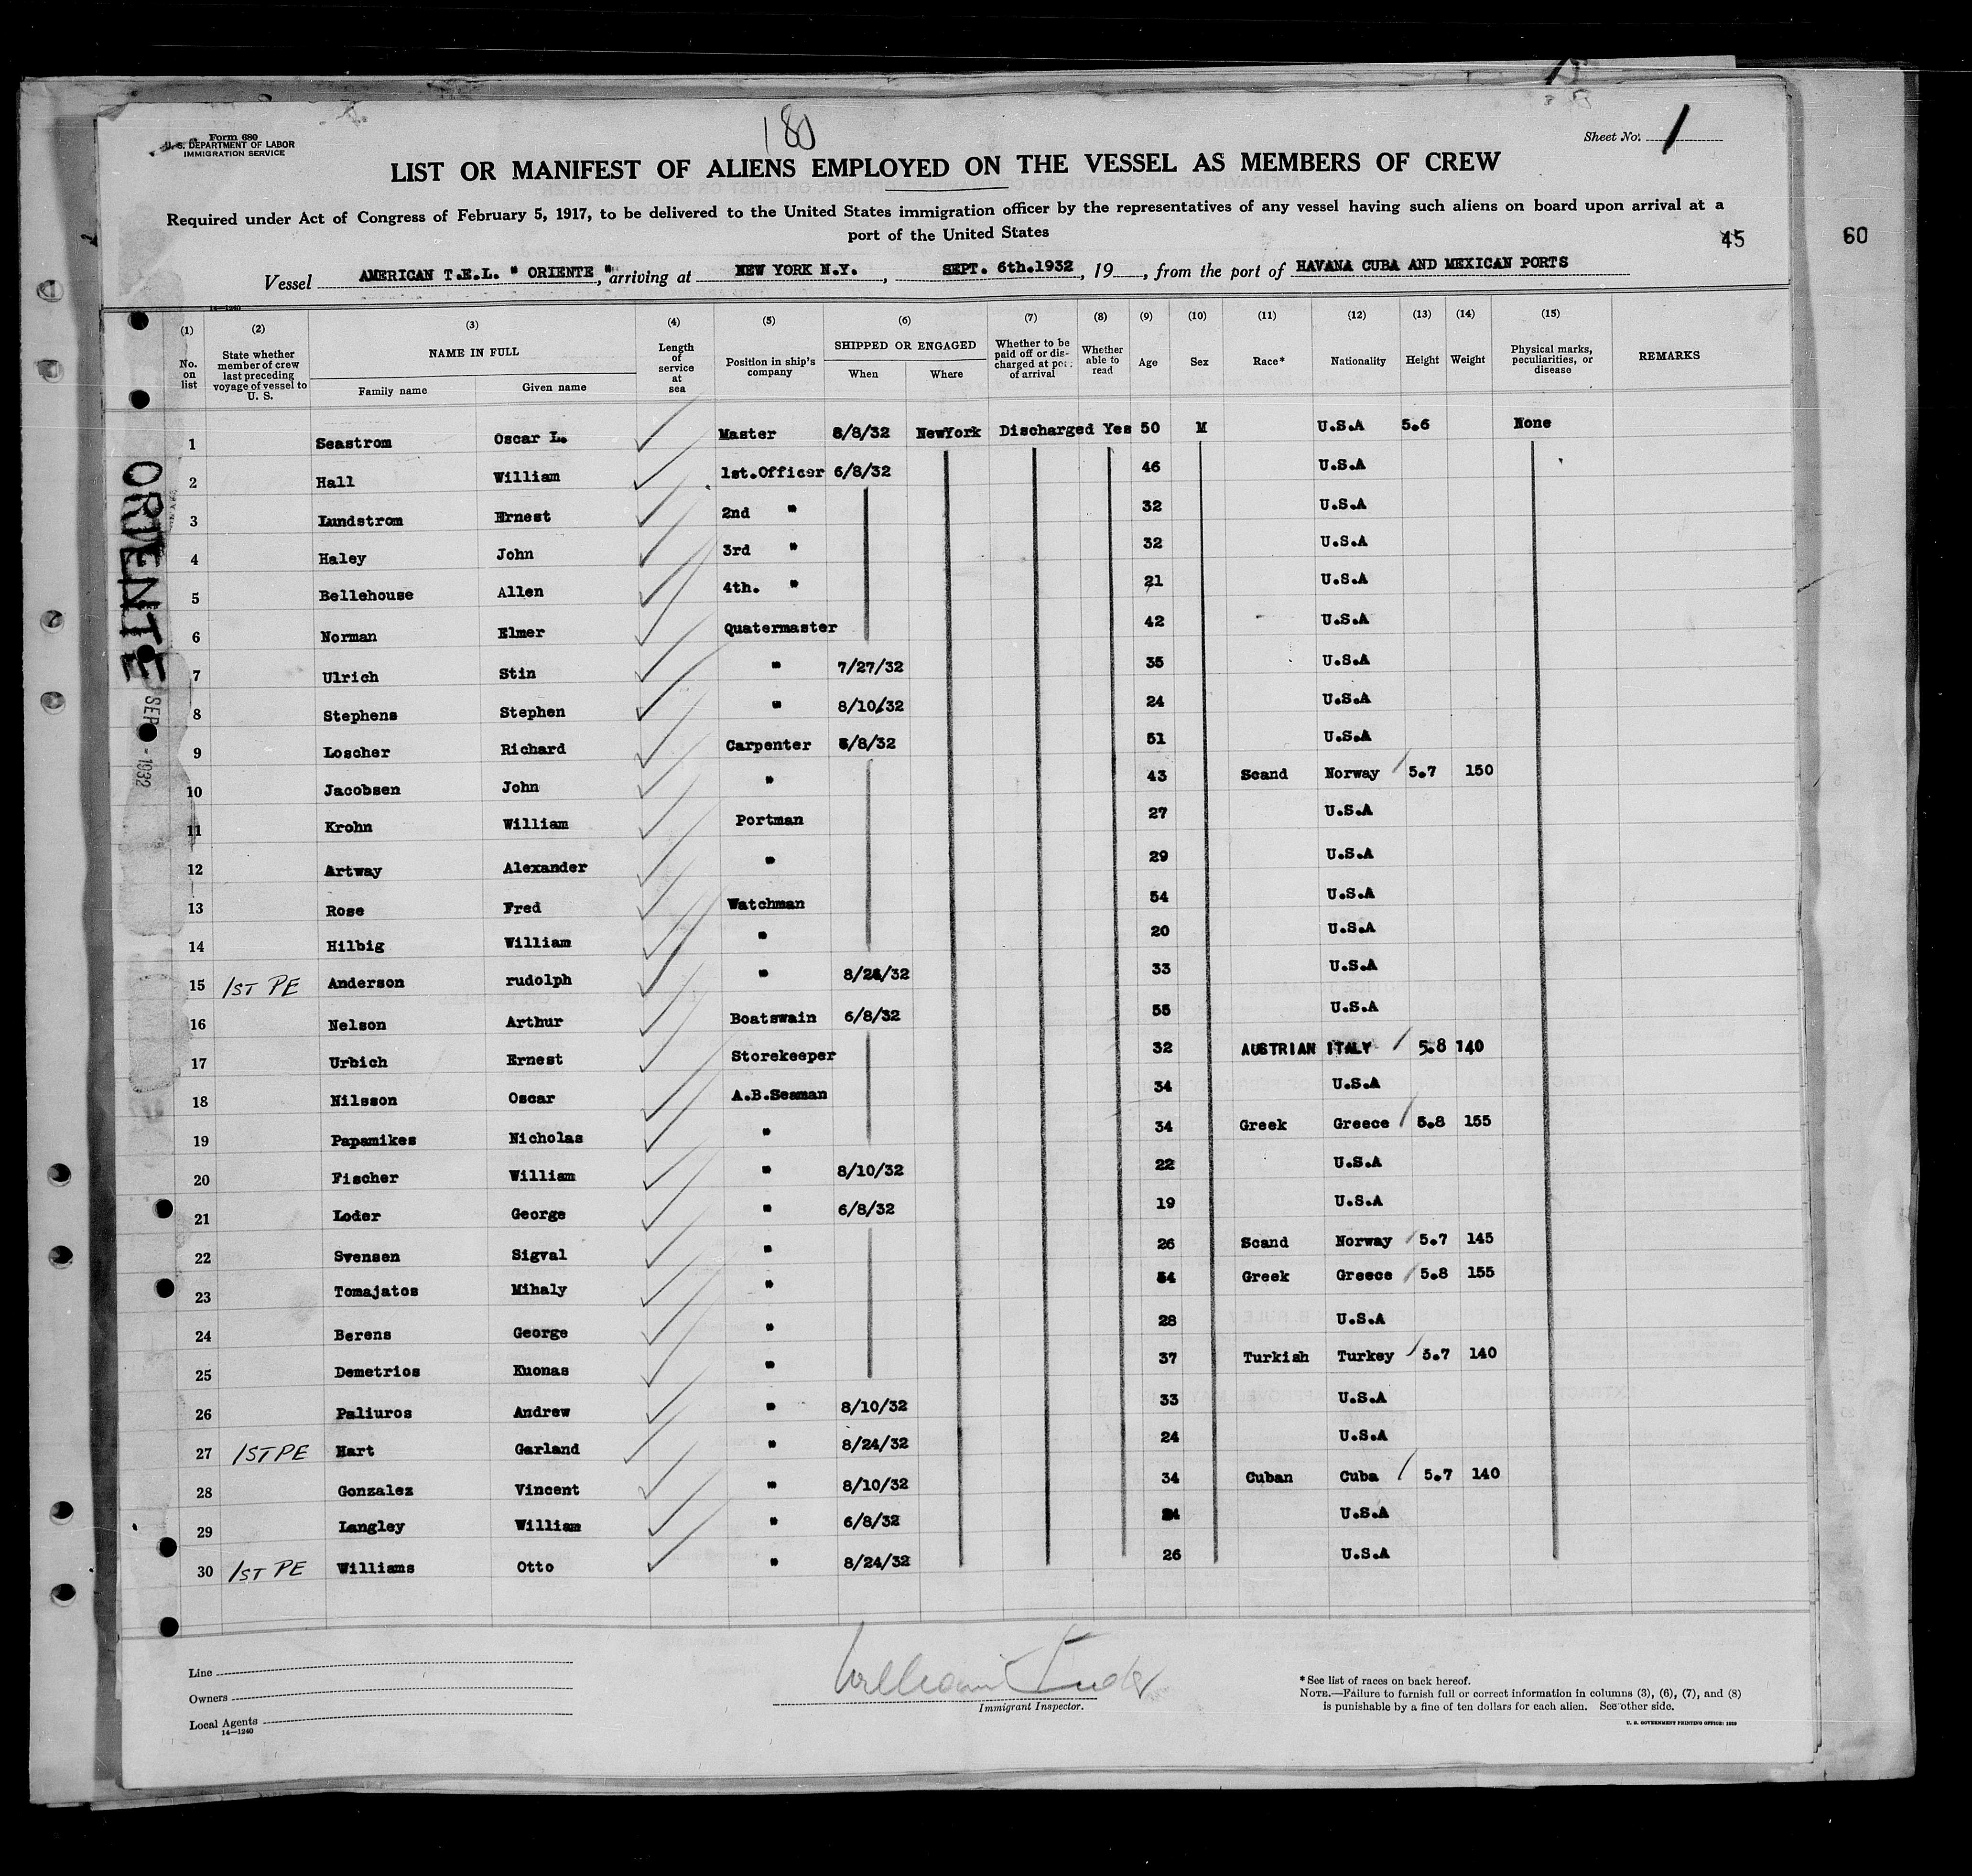 Form 680
U. S. DEPARTMENT OF LABOR
IMMIGRATION SERVICE
180
Sheet No. 1
LIST OR MANIFEST OF ALIENS EMPLOYED ON THE VESSEL AS MEMBERS OF CREW
Required under Act of Congress of February 5, 1917, to be delivered to the United States immigration officer by the representatives of any vessel having such aliens on board upon arrival at a
port of the United States
45 60
Vessel AMERICAN T.E.L. " ORIENTE ", arriving at NEW YORK N.Y., SEPT. 6th.1932, 19, from the port of HAVANA CUBA AND MEXICAN PORTS
14—1240
(1) No. on list
(2) State whether member of crew last preceding voyage of vessel to U. S.
(3) NAME IN FULL Family name Given name
(4) Length of service at sea
(5) Position in ship's company
(6) SHIPPED OR ENGAGED When Where
(7) Whether to be paid off or discharged at port of arrival
(8) Whether able to read
(9) Age
(10) Sex
(11) Race*
(12) Nationality
(13) Height
(14) Weight
(15) Physical marks, peculiarities, or disease
REMARKS
1 Seastrom Oscar L. Master 8/8/32 NewYork Discharged Yes 50 M U.S.A 5.6 None
2 Hall William 1st.Officer 6/8/32 46 U.S.A
3 Lundstrom Ernest 2nd " 32 U.S.A
4 Haley John 3rd " 32 U.S.A
5 Bellehouse Allen 4th. " 21 U.S.A
6 Norman Elmer Quatermaster 42 U.S.A
7 Ulrich Stin " 7/27/32 35 U.S.A
8 Stephens Stephen " 8/10/32 24 U.S.A
9 Loscher Richard Carpenter 6/8/32 51 U.S.A
10 Jacobsen John " 43 Scand Norway 5.7 150
11 Krohn William Portman 27 U.S.A
12 Artway Alexander " 29 U.S.A
13 Rose Fred Watchman 54 U.S.A
14 Hilbig William " 20 U.S.A
15 1ST PE Anderson rudolph " 33 U.S.A
16 Nelson Arthur Boatswain 6/8/32 55 U.S.A
17 Urbich Ernest Storekeeper 32 AUSTRIAN ITALY 5.8 140
18 Nilsson Oscar A.B.Seaman 34 U.S.A
19 Papamikes Nicholas " 34 Greek Greece 5.8 155
20 Fischer William " 8/10/32 22 U.S.A
21 Loder George " 6/8/32 19 U.S.A
22 Svensen Sigval " 26 Scand Norway 5.7 145
23 Tomajatos Mihaly " 54 Greek Greece 5.8 155
24 Berens George " 28 U.S.A
25 Demetrios Kuonas " 37 Turkish Turkey 5.7 140
26 Paliuros Andrew " 8/10/32 33 U.S.A
27 1ST PE Hart Garland " 8/24/32 24 U.S.A
28 Gonzalez Vincent " 8/10/32 34 Cuban Cuba 5.7 140
29 Langley William " 6/8/32 U.S.A
30 1ST PE Williams Otto " 8/24/32 26 U.S.A
ORIENTE
SEP - 1932
Line
Owners
Local Agents
14—1240
William
Immigrant Inspector.
* See list of races on back hereof.
NOTE.—Failure to furnish full or correct information in columns (3), (6), (7), and (8)
is punishable by a fine of ten dollars for each alien. See other side.
U. S. GOVERNMENT PRINTING OFFICE: 1929